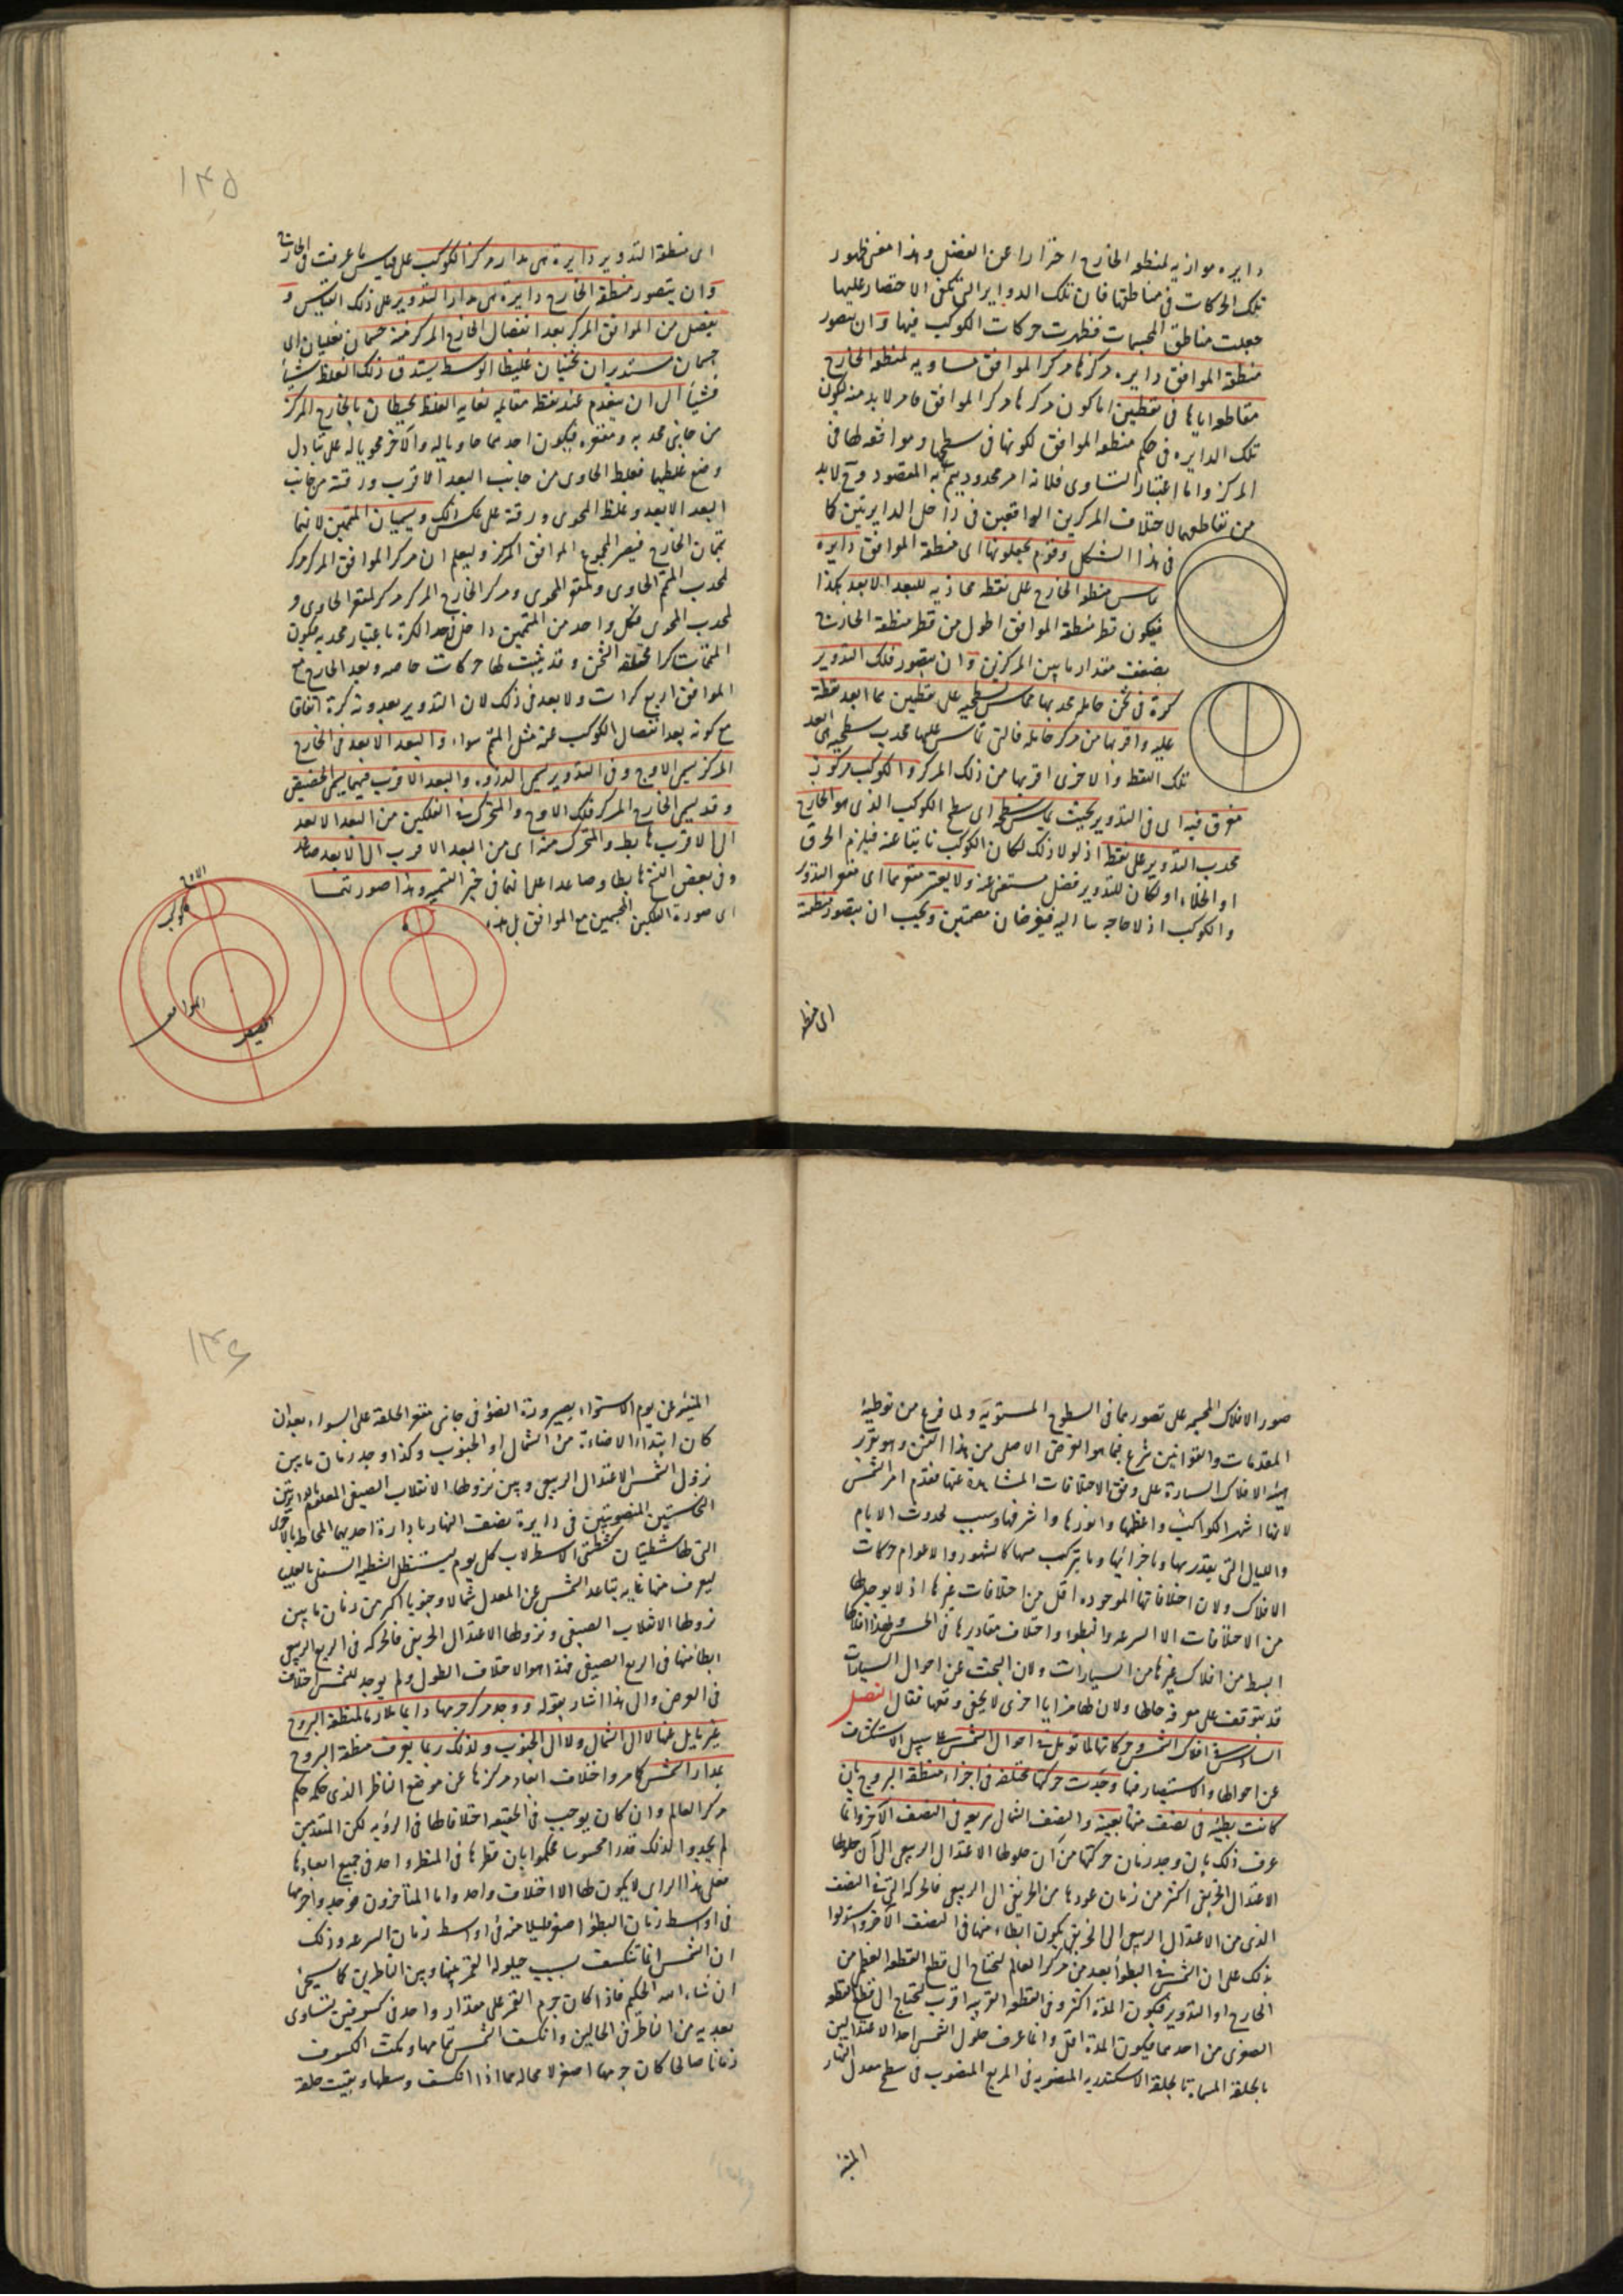 دايره موازيه لمنطقه الخارج احترازا عن الفضل وهذا معنى ظهور
تلك الحركات في مناطقها فان تلك الدواير التي يمكن الاختصار عليها
جعلت مناطق المجسمات فظهرت حركات الكوكب فيها وان يتصور
منطقة الموافق دايره مركزها مركز الموافق مساويه لمنطقه الخارج
مقاطع اياها في نقطتين اما كون مركزها مركز الموافق فامر لابد منه ليكون
تلك الدايره في حكم منطقه الموافق لكونها في سطحها وموافقه لها في
المركز واما اعتبار التساوى فلانه امر محدود يتم به المقصود وح لابد
من تقاطعهما لاختلاف المركزين الواقعين في داخل الدايرتين كما
في هذا الشكل وقوم يجعلونها اى منطقة الموافق دايره
يماس منطقه الخارج على نقطه محاذيه للبعد الابعد هكذا
فيكون قطر منطقة الموافق اطول من قطر منطقة الخارج
بضعف مقدار ما بين المركزين وان يتصور فلك التدوير
كرة في ثخن حامله محدبها يماس سطحيه على نقطتين هما ابعد نقطة
عليه واقربها من مركز حامله فالتى تماس عليها محدب سطحيه هى ابعد
تلك النقط والاخرى اقربها من ذلك المركز والكوكب مركوز
مغرق فيه اى في التدوير بحيث يماس سطحه اى سطح الكوكب الذى هو الخارج
محدب التدوير على نقطة اذ لولا ذلك لكان الكوكب ناتيا عنه فيلزم الخرق
او الخلاء او لكان للتدوير فضل مستغنى عنه ولا يعتبر مقعرهما اى مقعر التدوير
والكوكب اذ لا حاجه بنا اليه فيفرضان مصمتين ويجب ان يتصور منطقة
اى منطقه
١٣٥
اى منطقة التدوير دايرة هى مدار مركز الكوكب على قياس ما عرفت في الخارج
وان يتصور منطقة الخارج دايرة هى مدار التدوير على ذلك القياس و
يفضل من الموافق المركز بعد انفصال الخارج المركز منه جسمان تعليميان اى
جسمان مستديران ثخنيان غليظا الوسط يستدق ذلك الغلظ شيأ
فشيأ الى ان ينعدم عند نقطه مقابله لغايه الغلظ يحيطان بالخارج المركز
من جانبى محدبه ومقعره فيكون احدهما حاويا له والآخر محويا له على تبادل
وضع غلظيهما فغلظ الحاوى من جانب البعد الاقرب ورقته من جانب
البعد الابعد وغلظ المحوى ورقته على عكس ذلك ويسميان المتممين لانهما
يتمان الخارج فيصير المجموع الموافق المركز وليعلم ان مركز الموافق المركز مركز
لمحدب المتمم الحاوى ولمقعر المحوى ومركز الخارج المركز مركز لمقعر الحاوى و
لمحدب المحوى فكل واحد من المتممين داخل في حد الكرة باعتبار محدبه فيكون
المتممات كرا مختلفة الثخن وقد يثبت لها حركات خاصه ويعد الخارج مع
الموافق اربع كرات ولا بعد في ذلك لان التدوير يعدونه كرة اتفاقا
مع كونه بعد انفصال الكوكب عنه مثل المتمم سواء والبعد الابعد في الخارج
المركز يسمى الاوج وفي التدوير يسمى الذروه والبعد الاقرب فيهما يسمى الحضيض
وقد يسمى الخارج المركز فلك الاوج والمتحرك في الفلكين من البعد الابعد
الى الاقرب هابط والمتحرك منه اى من البعد الاقرب الى الابعد صاعد
وفي بعض النسخ هابطا وصاعدا على انهما في خبر التسميه وهذا صورتهما
اى صورة الفلكين المجسمين مع الموافق بل هذه
الاوج
كوكب
الموافق
الحضيض
صور الافلاك المجسمه على تصورهما في السطوح المستويه ولما فرغ من توطئة
المقدمات والقوانين شرع فيما هو الغرض الاصلى من هذا الفن وهو تقرير
هيئه الافلاك السيارة على وفق الاختلافات المشاهدة عنها فقدم امر الشمس
لانها اشهر الكواكب واعظمها وانورها واشرفها وسبب لحدوث الايام
والليالى التى يتقدر بها وباجزائها وما يتركب منها كالشهور والاعوام حركات
الافلاك ولان اختلافاتها الموجوده اقل من اختلافات غيرها اذ لا يوجد لها
من الاختلافات الا السرعه والبطؤ واختلاف مقاديرها في الحس ولهذا افلاكها
ابسط من افلاك غيرها من السيارات ولان البحث عن احوال السيارات
قد يتوقف على معرفه حالها ولان لها مزايا اخرى لا يخفى وقعها فقال الفصل
السادس في افلاك الشمس وحركاتها لما تومل في احوال الشمس على سبيل الاستكشاف
عن احوالها والاستبصار فيها وجدت حركتها مختلفه في اجزاء منطقة البروج بان
كانت بطيئه في نصف منها بعينه والنصف الشمالى سريعه في النصف الآخر وانما
عرف ذلك بان وجد زمان حركتها من آن حلولها الاعتدال الربيعى الى آن حلولها
الاعتدال الخريفى اكثر من زمان عودها من الخريفى الى الربيعى فالحركه التى في النصف
الذى من الاعتدال الربيعى الى الخريفى يكون ابطاء منها في النصف الآخر واستدلوا
بذلك على ان الشمس في البطؤ ابعد من مركز العالم لتحتاج الى قطع القطعه العظمى من
الخارج او التدوير فيكون المدة اكثر وفي القطعه القريبه اقرب لتحتاج الى قطع القطعه
الصغرى من احدهما فيكون المدة اقل وانما عرف حلول الشمس احد الاعتدالين
بالحلقة المسماة بالحلقة الاسكندريه المنصوبه في المربع المنصوب في سطح معدل النهار
المنبئه
١٣٦
المنبئه عن يوم الاستواء بصيرورة الضؤ في جانبى مقعر الحلقه على السواء بعد ان
كان ابتداء الاضاءة من الشمال او الجنوب وكذا وجد زمان ما بين
نزول الشمس الاعتدال الربيعى وبين نزولها الانقلاب الصيفى المعلوم بالدايرتين
النحاستين المنصوبتين في دايرة نصف النهار بادارة احديهما المحاط بالاخرى
التى لها شظيتان كشظيتى الاسطرلاب كل يوم ليستظل الشظيه السفلى بالعليا
ليعرف منها غايه تباعد الشمس عن المعدل شمالا وجنوبا اكثر من زمان ما بين
نزولها الانقلاب الصيفى ونزولها الاعتدال الخريفى فالحركه في الربع الربيعى
ابطأ منها في الربع الصيفى فهذا هو الاختلاف الطول ولم يوجد للشمس اختلاف
في العرض والى هذا اشار بقوله ووجد مركز جرمها دايما ملازما لمنطقة البروج
غير مايل عنها لا الى الشمال ولا الى الجنوب ولذلك ربما يعرف منطقة البروج
بمدار الشمس كما مر واختلاف ابعاد مركزها عن موضع الناظر الذى حكمه حكم
مركز العالم وان كان يوجب في الحقيقه اختلافا لها في الرؤيه لكن المتقدمين
لم يجدوا لذلك قدرا محسوسا فحكموا بان قطرها في المنظر واحد في جميع ابعادها
فعلى هذا الراى لا يكون لها الا اختلاف واحد واما المتأخرون فوجدوا جرمها
في اواسط زمان البطؤ اصغر قليلا منه في اواسط زمان السرعه وذلك
ان الشمس انما تنكسف بسبب حيلوله القمر بينها وبين الناظرين كما سيجئ
ان شاء الله الحكيم فاذا كان جرم القمر على مقدار واحد في كسوفين لتساوى
بعديه من الناظر في الحالين وانكسف الشمس بتمامها ومكث الكسوف
زمانا صالحا كان جرمها اصغر لا محاله مما اذا انكسف وسطها وبقيت حلقة